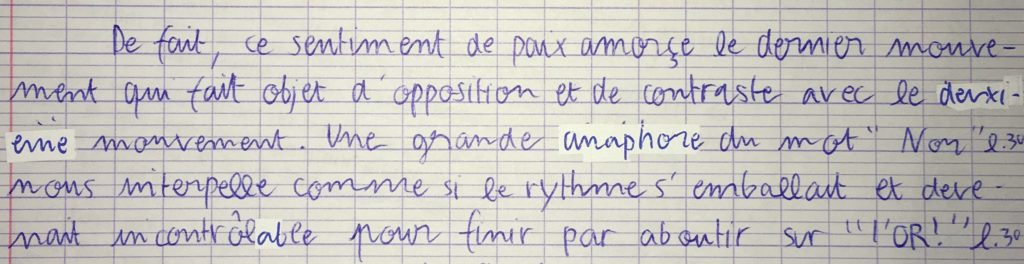 De fait, ce sentiment de paix amorçe le dernier mouve-
ment qui fait objet d'opposition et de contraste avec le deuxi-
ème mouvement. Une grande anaphore du mot "Non" l.30
nous interpelle comme si le rythme s'emballait et deve-
nait incontrôlable pour finir par aboutir sur "l'OR!" l.30